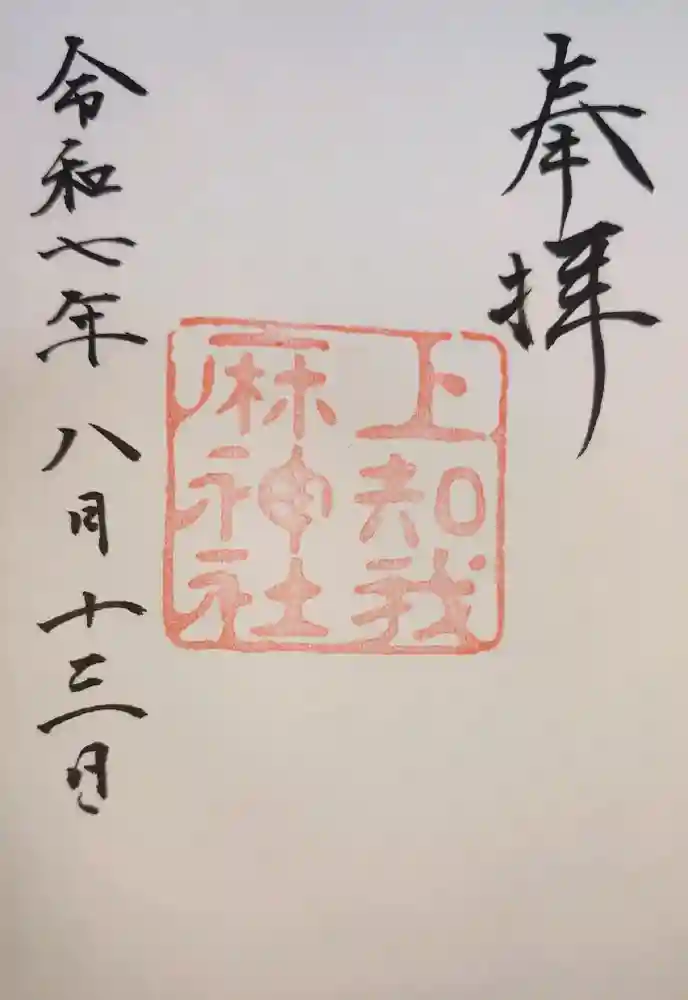 奉拝
上知我
麻神社
令和七年八月十三日